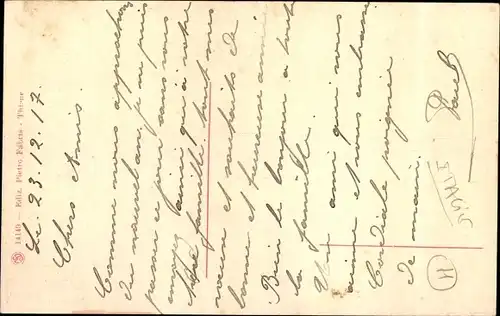 14149 - Ediz. Pietro Fidele - Thione
Le. 23. 12. 17.
Chers Amis.
Comme nous approchons
du nouvel an, je ne puis
passer ce jour sans vous
ainsi qu'à votre
famille tout nos
voeux et souhaits de
bonne et heureuse année
Bien le bonjour a toute
la famille.
Un ami qui vous
aime et vous embrasse
Cordiale poignée
de main.
Paul
H